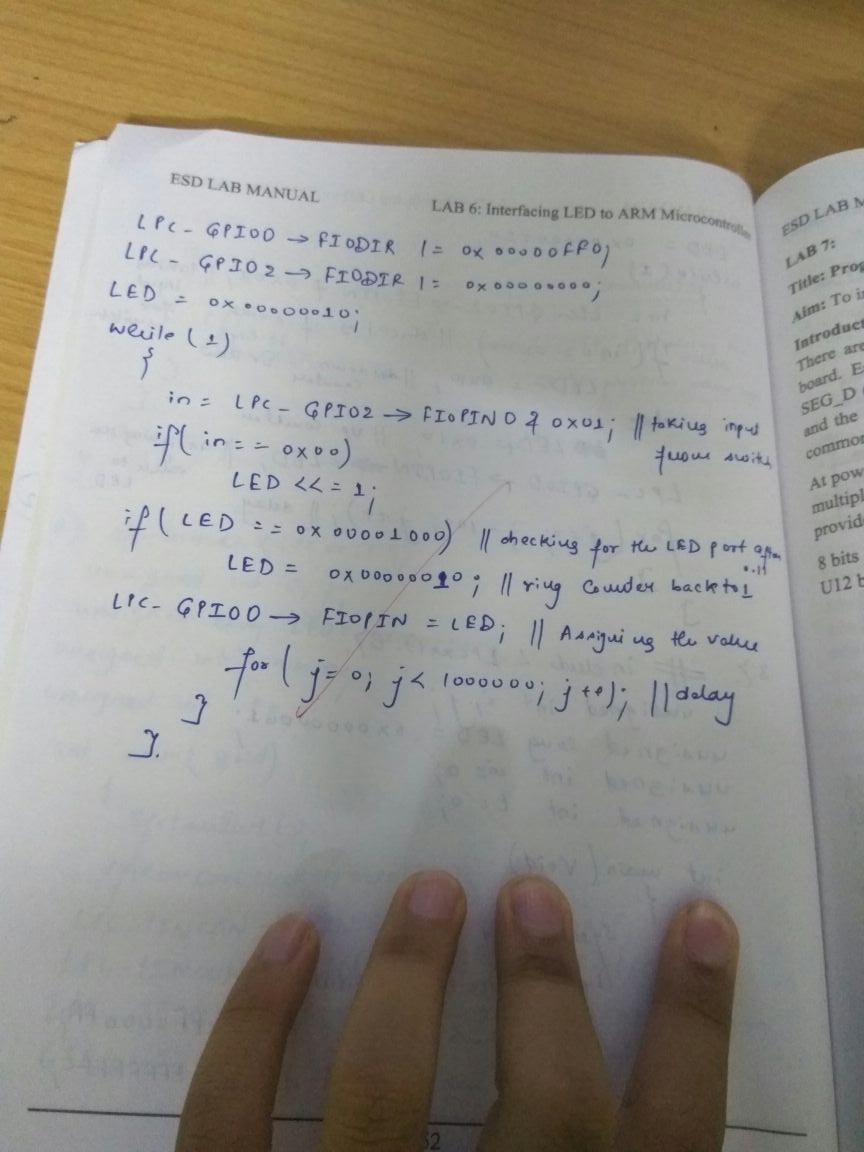 ESD LAB MANUAL
LAB 6: Interfacing LED to ARM Microcontroller
LPC- GPIO0 → FIODIR |= 0x 00000FF0;
LPC- GPIO2 → FIODIR |= 0x00000000;
LED = 0x00000010;
while (1)
{
in = LPC- GPIO2 → FIOPIN0 & 0x01; // taking input
from switch
if( in == 0x00)
LED <<= 1;
if( LED == 0x 00001000) // checking for the LED port after
0.11
LED = 0x00000010; // ring counder back to 1
LPC- GPIO0 → FIOPIN = LED; // Assigning the value
for( j=0; j< 1000000; j++); // delay
}
}.
52
ESD LAB M
LAB 7:
Title: Prog
Aim: To in
Introduct
There are
board. E
SEG_D
and the
common
At pow
multipl
provid
8 bits
U12 b